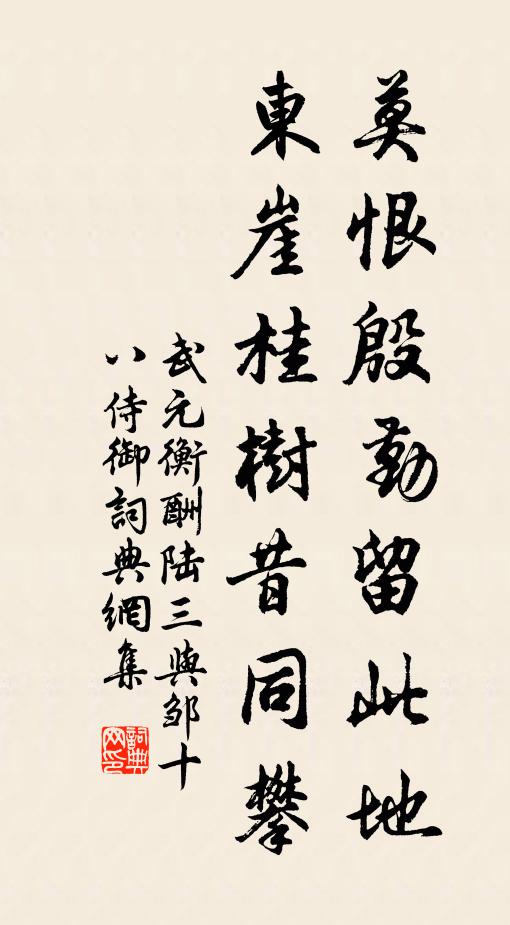 莫恨殷勤留此地
東崖桂樹昔同攀
武元衡酬陆三與邹十
八侍御詞典網集
詞典
网印